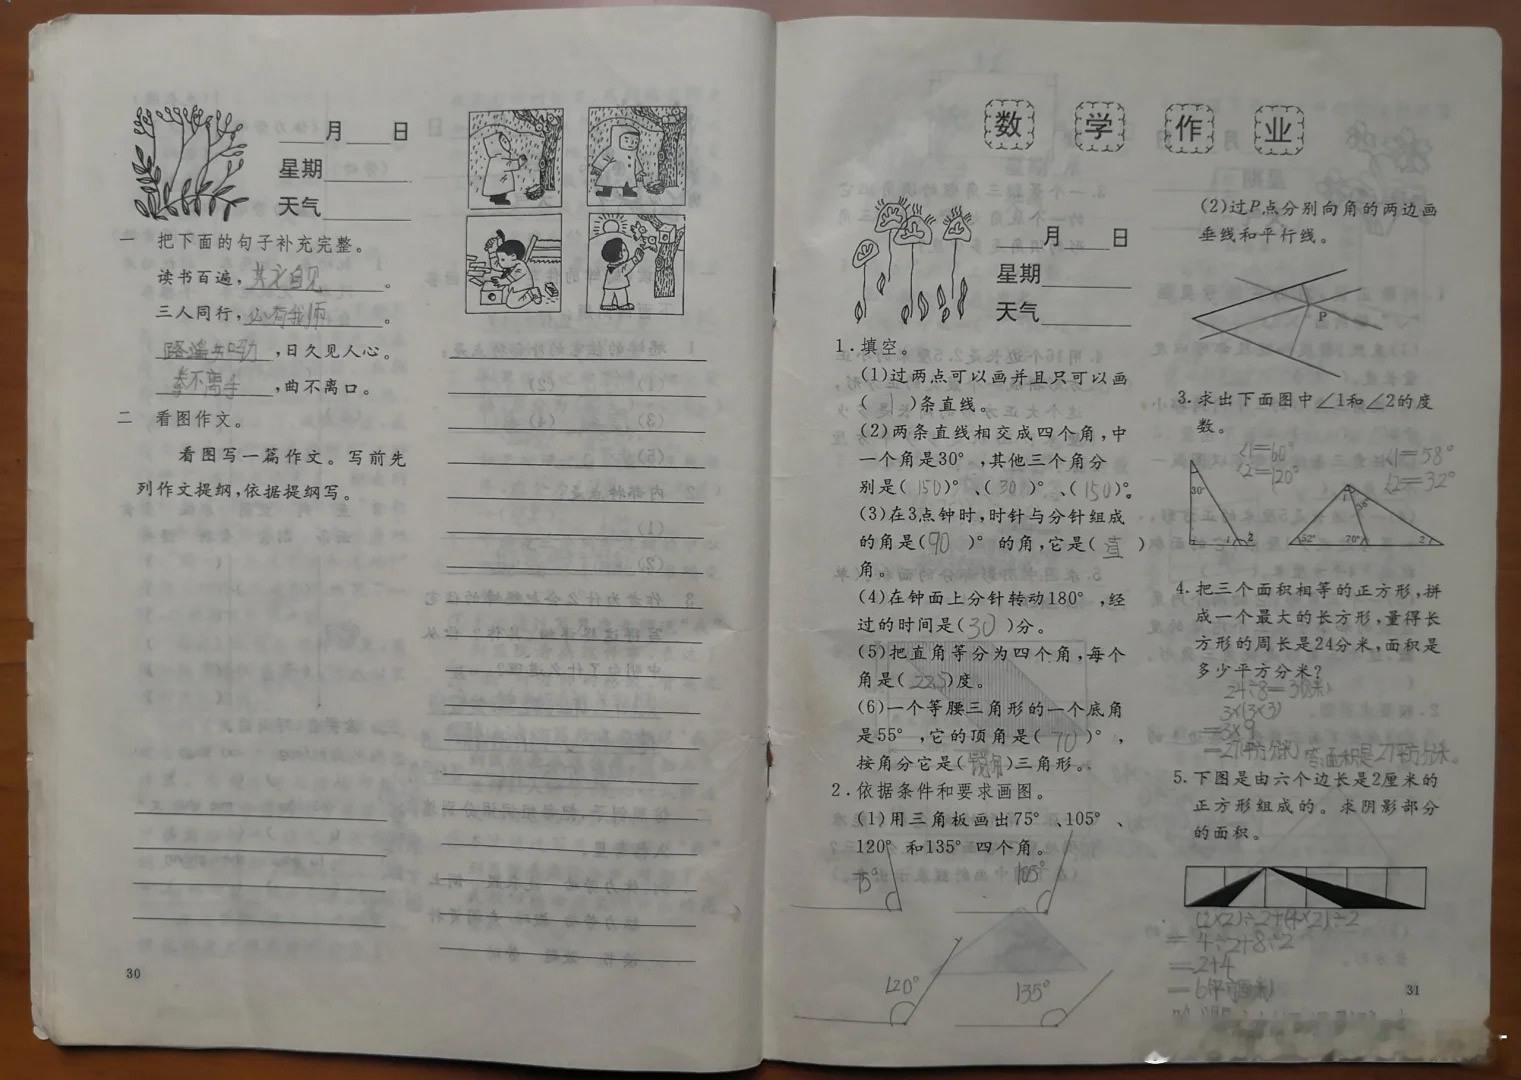 ____月____日
星期________
天气________
一 把下面的句子补充完整。
读书百遍，其义自见。
三人同行，必有我师。
路遥知马力，日久见人心。
拳不离手，曲不离口。
二 看图作文。
看图写一篇作文。写前先
列作文提纲，依据提纲写。
30
数学作业
____月____日
星期________
天气________
1.填空。
(1)过两点可以画并且只可以画
(1)条直线。
(2)两条直线相交成四个角，中
一个角是30°，其他三个角分
别是(150)°、(30)°、(150)°。
(3)在3点钟时，时针与分针组成
的角是(90)°的角，它是(直)
角。
(4)在钟面上分针转动180°，经
过的时间是(30)分。
(5)把直角等分为四个角，每个
角是(22.5)度。
(6)一个等腰三角形的一个底角
是55°，它的顶角是(70)°，
按角分它是(锐角)三角形。
2.依据条件和要求画图。
(1)用三角板画出75°、105°、
120°和135°四个角。
75°
105°
120°
135°
(2)过P点分别向角的两边画
垂线和平行线。
P
3.求出下面图中∠1和∠2的度
数。
∠1=60°
∠2=120°
∠1=58°
∠2=32°
30°
1 2
1 38°
52° 70° 2
4.把三个面积相等的正方形，拼
成一个最大的长方形，量得长
方形的周长是24分米，面积是
多少平方分米？
24÷8=3(分米)
3×(3×3)
=3×9
=27(平方分米) 答:面积是27平方分米。
5.下图是由六个边长是2厘米的
正方形组成的。求阴影部分
的面积。
(2×2)÷2+(4×2)÷2
=4÷2+8÷2
=2+4
=6(平方厘米)
31